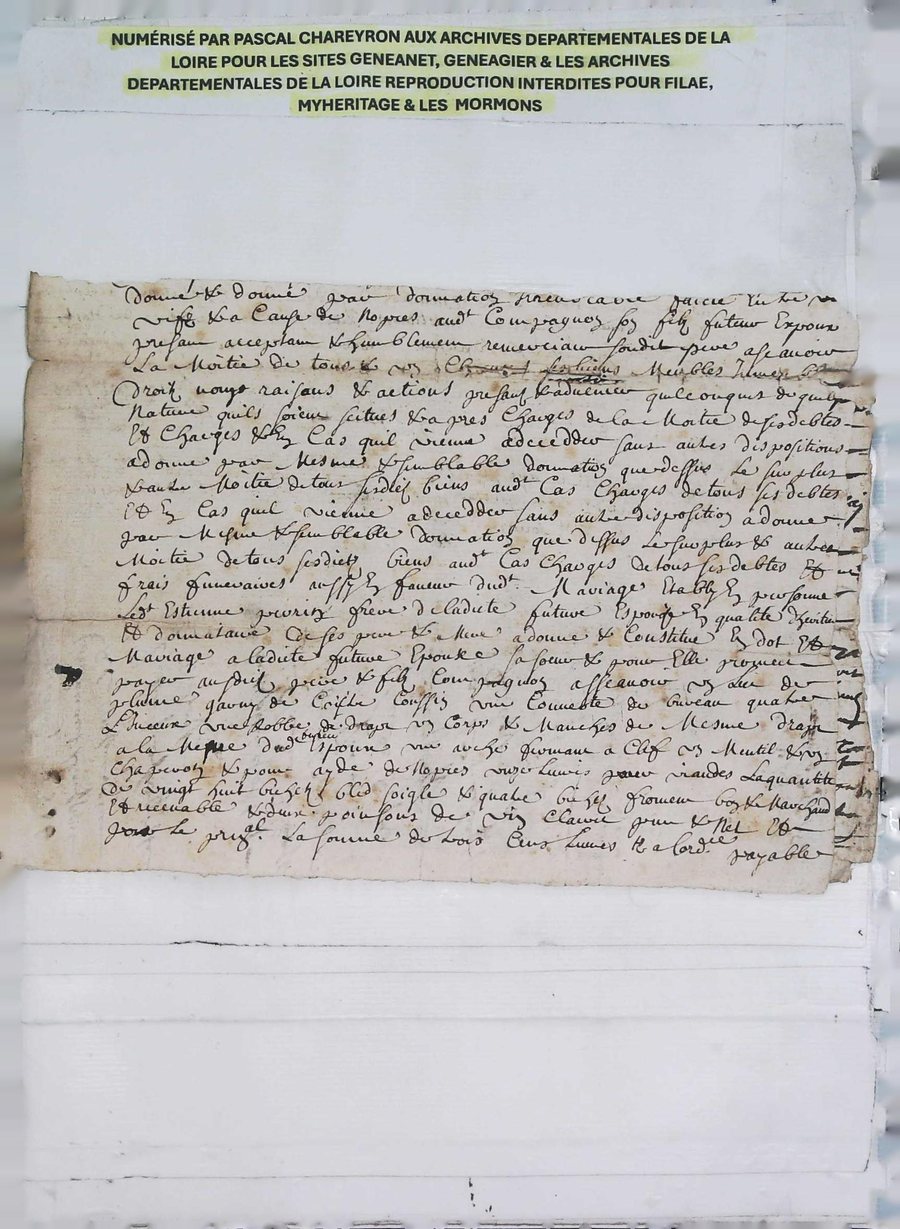 NUMÉRISÉ PAR PASCAL CHAREYRON AUX ARCHIVES DEPARTEMENTALES DE LA
LOIRE POUR LES SITES GENEANET, GENEAGIER & LES ARCHIVES
DEPARTEMENTALES DE LA LOIRE REPRODUCTION INTERDITES POUR FILAE,
MYHERITAGE & LES MORMONS
donne & donne par donnation irrevocable faicte entre
vifz & a Cause de Nopces audt Compagnon son filz futeur Expoux
presant acceptant & humblement remerciant sondit pere ascavoir
La Moitie de tous & Meubles
Droitz noms raisons & actions presantz & advenir quelconques de quelq
Nature quils soient scitues & apres Charges de la Moitie de ses debtes
Et Charges & En Cas quil vienne a decedder sans autres dispositions
a donne par Mesme & semblable donnation que dessus Le surplus
& autre Moitie de tous sesditz biens audt Cas Charges de tous ses debtes
Et En Cas quil vienne a decedder sans autre disposition a donne
par Mesme & semblable donnation que dessus Le surplus & autre
Moitie de tous sesditz biens audt Cas Charges de tous ses debtes Et
frais funeraires aussy En faveur dudt Mariage Estably En personne
Ledt Estienne frere de ladicte future Espouze En qualite dheritier
Et donnataire de ses pere & Mere a donne & Constitue En dot Et
Mariage a ladicte future Epouse sa soeur & pour Elle promect
payer ausditz pere & filz Compagnon asscavoir un Lict de
plume garny de Coistre Coussin une Couverte de bureau quatre
Linceux une Robbe de drapt un Corps & Manches de Mesme drapt
a la Mesme dud Espoux une arche fermant a Clef un Mentil & un
Chaperon & pour ayde de Nopces unze Livres viandes Laquantite
de vingt huit bichetz bled soigle & quatre bichetz froment bon & Marchand
Et recevable & deux poinsons de vin Clairet pur & Net Et
pour Le prinal La somme de trois Cens Livres payable